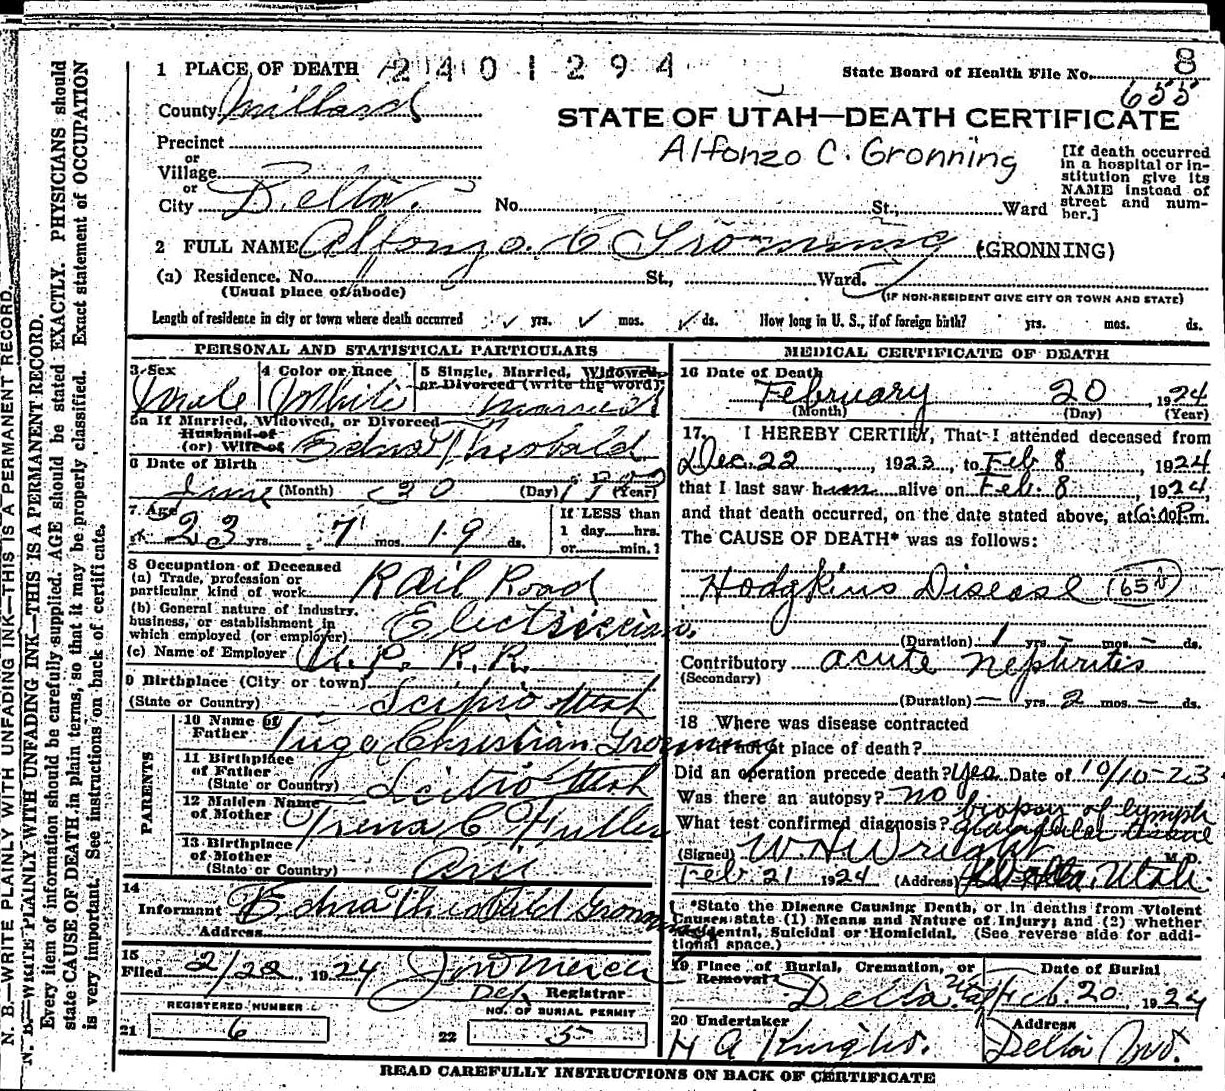 1 PLACE OF DEATH 2401294
State Board of Health File No. 8
655
County Millard
STATE OF UTAH—DEATH CERTIFICATE
Precinct
Alfonzo C. Gronning
[If death occurred in a hospital or institution give its NAME instead of street and number.]
or
Village
or
City Delta. No. St., Ward
2 FULL NAME Alfonzo. C Gronning (GRONNING)
(a) Residence. No. St., Ward.
(Usual place of abode) (IF NON-RESIDENT GIVE CITY OR TOWN AND STATE)
Length of residence in city or town where death occurred ✓ yrs. ✓ mos. ✓ ds. How long in U. S., if of foreign birth? yrs. mos. ds.
PERSONAL AND STATISTICAL PARTICULARS
3 Sex Male
4 Color or Race White
5 Single, Married, Widowed, or Divorced (write the word) Married
5a If Married, Widowed, or Divorced
Husband of
(or) Wife of Edna Theobald
6 Date of Birth
June (Month) 30 (Day) (Year)
7 Age 23 yrs. 7 mos. 19 ds.
If LESS than
1 day hrs.
or min.?
8 Occupation of Deceased
(a) Trade, profession or
particular kind of work Rail Road
(b) General nature of industry,
business, or establishment in
which employed (or employer) Electrician.
(c) Name of Employer U. P. R. R.
9 Birthplace (City or town)
(State or Country) Scipio Utah
PARENTS
10 Name of
Father Christian Gronning
11 Birthplace
of Father
(State or Country) Scipio Utah
12 Maiden Name
of Mother C Fuller
13 Birthplace
of Mother
(State or Country)
14
Informant Edna Theobald Gronning
Address
15
Filed 2/28, 1924
Dep. Registrar
REGISTERED NUMBER
21 6
NO. OF BURIAL PERMIT
22 5
MEDICAL CERTIFICATE OF DEATH
16 Date of Death
February 20 1924
(Month) (Day) (Year)
17. I HEREBY CERTIFY, That I attended deceased from
Dec. 22, 1923, to Feb 8 1924
that I last saw him alive on Feb. 8, 1924,
and that death occurred, on the date stated above, at 6:00 P.m.
The CAUSE OF DEATH* was as follows:
Hodgkins Disease (65b)
(Duration) 1 yrs. – mos. – ds.
Contributory acute nephritis
(Secondary)
(Duration) – yrs. 2 mos. – ds.
18 Where was disease contracted
if not at place of death?
Did an operation precede death? Yes Date of 10/10-23
Was there an autopsy? no
What test confirmed diagnosis? biopsy of lymph
glandular tissue
(Signed) W H Wright M.D.
Feb 21 1924 (Address) Delta, Utah.
*State the Disease Causing Death, or in deaths from Violent
Causes state (1) Means and Nature of Injury; and (2) whether
Accidental, Suicidal or Homicidal. (See reverse side for addi-
tional space.)
19 Place of Burial, Cremation, or
Removal Delta Utah
Date of Burial
Feb 20, 1924
20 Undertaker
Address
READ CAREFULLY INSTRUCTIONS ON BACK OF CERTIFICATE
N. B.—WRITE PLAINLY WITH UNFADING INK—THIS IS A PERMANENT RECORD.
N. B.—WRITE PLAINLY WITH UNFADING INK—THIS IS A PERMANENT RECORD.
Every item of information should be carefully supplied. AGE should be stated EXACTLY. PHYSICIANS should
state CAUSE OF DEATH in plain terms, so that it may be properly classified. Exact statement of OCCUPATION
is very important. See instructions on back of certificate.